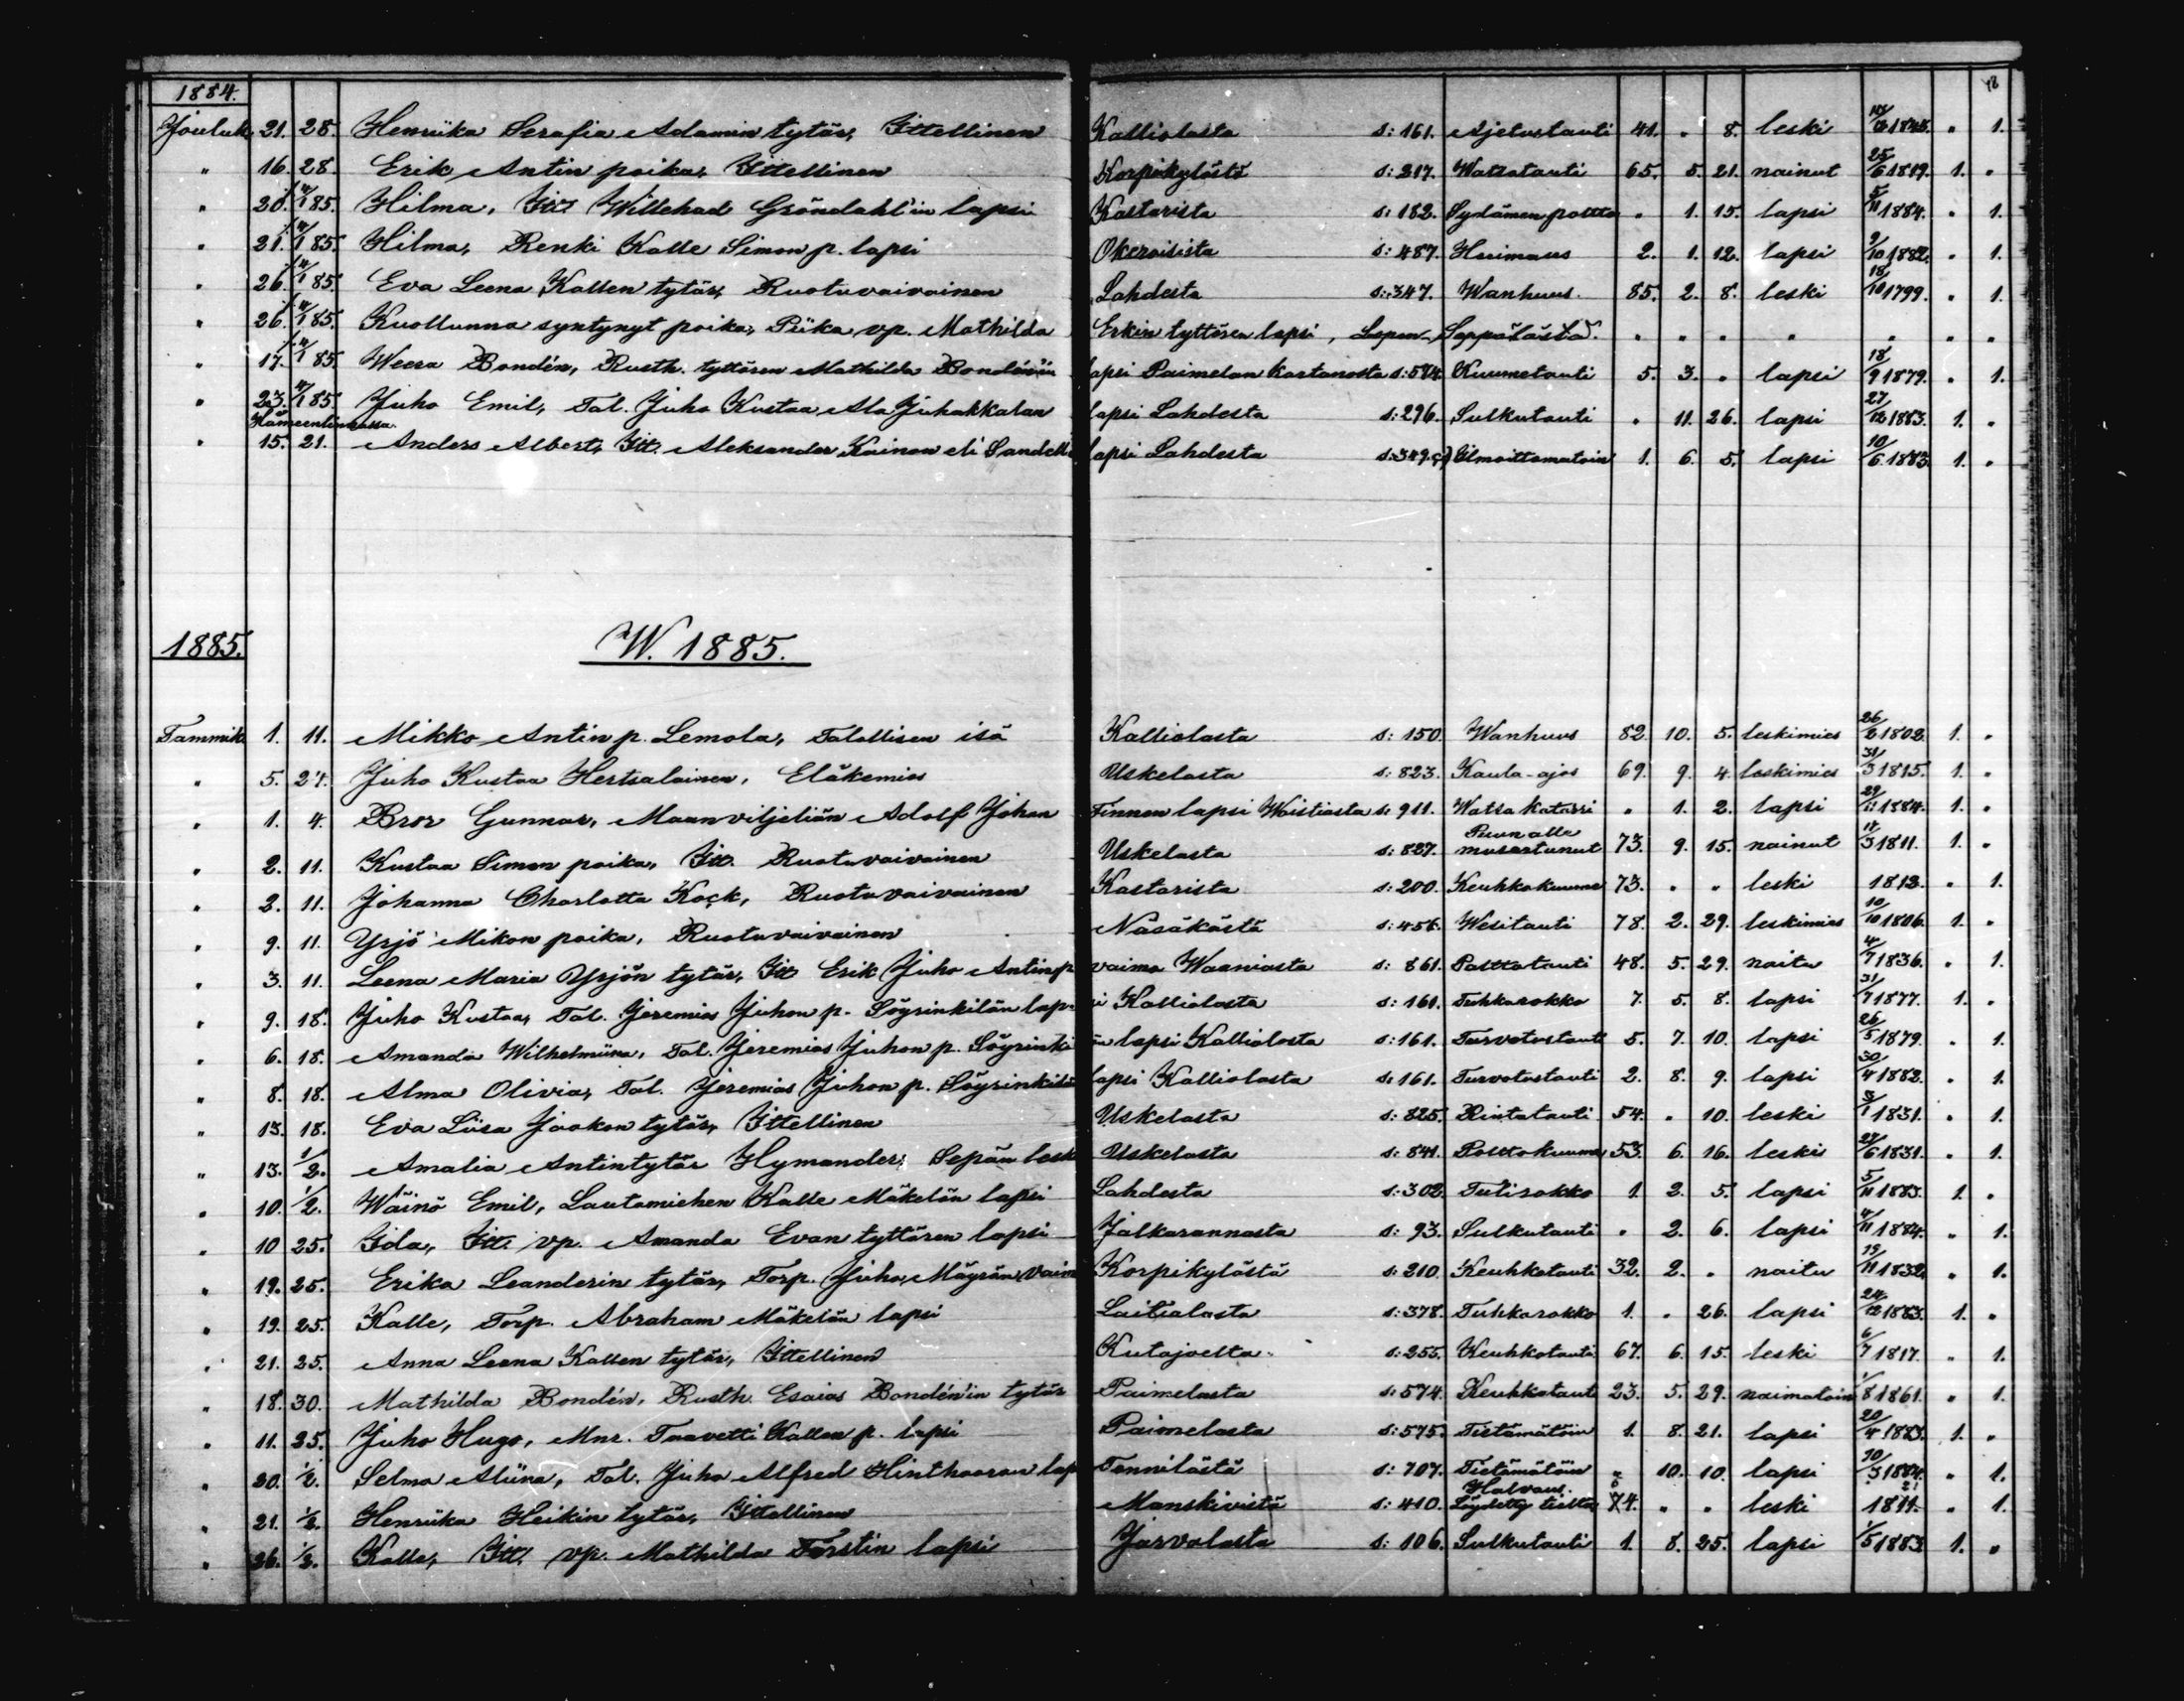 1884.
Jouluk. 21. 28. Henriika Serafia Adamin tytär, Ittellinen Kalliolasta s: 161. Ajetustauti 41. " 8. leski 13/12 1843. " 1.
" 16. 28. Erik Antin poika, Ittellinen Korpikylästä s: 217. Watsatauti 65. 5. 21. nainut 25/6 1819. 1. "
" 20. 4/1 85. Hilma, Itt. Willehad Gröndahl'in lapsi Kastarista s: 182. Sydämen poltto " 1. 15. lapsi 5/11 1884. " 1.
" 21. 4/1 85. Hilma, Renki Kalle Simon p. lapsi Okeroisista s: 487. Huimaus 2. 1. 12. lapsi 9/10 1882. " 1.
" 26. 4/1 85. Eva Leena Kallen tytär, Ruotuvaivainen Lahdesta s: 347. Wanhuus. 85. 2. 8. leski 18/10 1799. " 1.
" 26. 4/1 85. Kuollunna syntynyt poika, Piika vp. Mathilda Erkin tyttären lapsi, Lepen-Seppälästä. " " " " " " "
" 17. 4/1 85. Weera Bondén, Rusth. tyttären Mathilda Bondén'in lapsi Paimelan kartanosta s: 574. Kuumetauti 5. 3. " lapsi 18/9 1879. " 1.
" 23. 4/1 85. Juho Emil, Tal. Juho Kustaa Ala Juhakkalan lapsi Lahdesta s: 296. Sulkutauti " 11. 26. lapsi 27/12 1883. 1. "
Hämeenlinnassa.
" 15. 21. Anders Albert, Itt. Aleksander Kainon eli Sandell lapsi Lahdesta s: 349. Ilmoittamatoin 1. 6. 5. lapsi 10/6 1883. 1. "
1885. W. 1885.
Tammik. 1. 11. Mikko Antin p. Lemola, Talollisen isä Kalliolasta s: 150 Wanhuus 82 10. 5. leskimies 26/2 1802. 1. "
" 5. 24. Juho Kustaa Hertsalainen, Eläkemies Uskelasta s: 823. Kaula-ajos 69. 9. 4. leskimies 31/3 1815. 1. "
" 1. 4. Bror Gunnar, Maanviljeliän Adolf Johan Finnen lapsi Woistiasta s. 911. Watsa katarri " 1. 2. lapsi 29/11 1884. 1. "
" 2. 11. Kustaa Simon poika, Itt. Ruotuvaivainen Uskelasta s: 827. Puun alle musertunut 73. 9. 15. nainut 17/3 1811. 1. "
" 2. 11. Johanna Charlotta Kock, Ruotuvaivainen Kastarista s: 200. Keuhkokuume 73. " " leski 1812. " 1.
" 9. 11. Yrjö Mikon poika, Ruotuvaivainen Näsäkästä s: 456. Wesitauti 78. 2. 29. leskimies 10/10 1806. 1. "
" 3. 11. Leena Maria Yrjön tytär, Itt Erik Juho Antin p vaimo Waaniasta s: 861. Polttotauti 48. 5. 29. naitu 4/7 1836. " 1.
" 9. 18. Juho Kustaa, Tal. Jeremias Juhon p. Söyrinkilän lapsi Kalliolasta s: 161. Tuhkarokko 7. 5. 8. lapsi 31/7 1877. 1. "
" 6. 18. Amanda Wilhelmiina, Tal. Jeremias Juhon p. Söyrinkilän lapsi Kalliolasta s: 161. Turvotustauti 5. 7. 10. lapsi 26/5 1879. " 1.
" 8. 18. Alma Olivia, Tal. Jeremias Juhon p. Söyrinkilän lapsi Kalliolasta s: 161. Turvotustauti 2. 8. 9. lapsi 30/4 1882. " 1.
" 13. 18. Eva Liisa Jaakon tytär, Ittellinen Uskelasta s: 825. Rintatauti 54. " 10. leski 3/1 1831. " 1.
" 13. 1/2. Amalia Antintytär Hymander, Sepän leski Uskelasta s: 841. Polttokuume 53. 6. 16. leski 27/6 1831. " 1.
" 10. 1/2. Wäinö Emil, Lautamiehen Kalle Mäkelän lapsi Lahdesta s: 302. Tulirokko 1. 2. 5. lapsi 5/11 1883. 1. "
" 10 25. Ida, Itt. vp. Amanda Evan tyttären lapsi Jalkarannasta s: 93. Sulkutauti " 2. 6. lapsi 4/11 1884. " 1.
" 19. 25. Erika Leanderin tytär, Torp. Juho Mäyrän vaimo Korpikylästä s: 210 Keuhkotauti 32. 2. " naitu 19/11 1832. " 1.
" 19. 25. Kalle, Torp. Abraham Mäkelän lapsi Laitialasta s: 378. Tuhkarokko 1. " 26. lapsi 24/12 1883. 1. "
" 21. 25. Anna Leena Kallen tytär, Ittellinen Kutajoelta s: 255. Keuhkotauti 67. 6. 15. leski 6/7 1817. " 1.
" 18. 30. Mathilda Bondén, Rusth. Esaias Bondén'in tytär Paimelasta s: 574. Keuhkotauti 23. 5. 29. naimatoin 1/8 1861. " 1.
" 11. 25. Juho Hugo, Mnr. Taavetti Kallen p. lapsi Paimelasta s: 575. Tietämätöin 1. 8. 21. lapsi 20/4 1883. 1. "
" 20. 1/2. Selma Aliina, Tal. Juho Alfred Hinthaaran lapsi Tennilästä s: 707. Tietämätöin " 10. 10. lapsi 10/3 1884. " 1.
" 21. 1/2. Henriika Heikin tytär, Ittellinen Manskivistä s: 410. Halvaus. Löydetty tieltä 74. " " leski 1811. " 1.
" 26. 1/2. Kalle, Itt. vp. Mathilda Forstin lapsi Järvolasta s: 106. Sulkutauti 1. 8. 25. lapsi 1/5 1883. 1. "